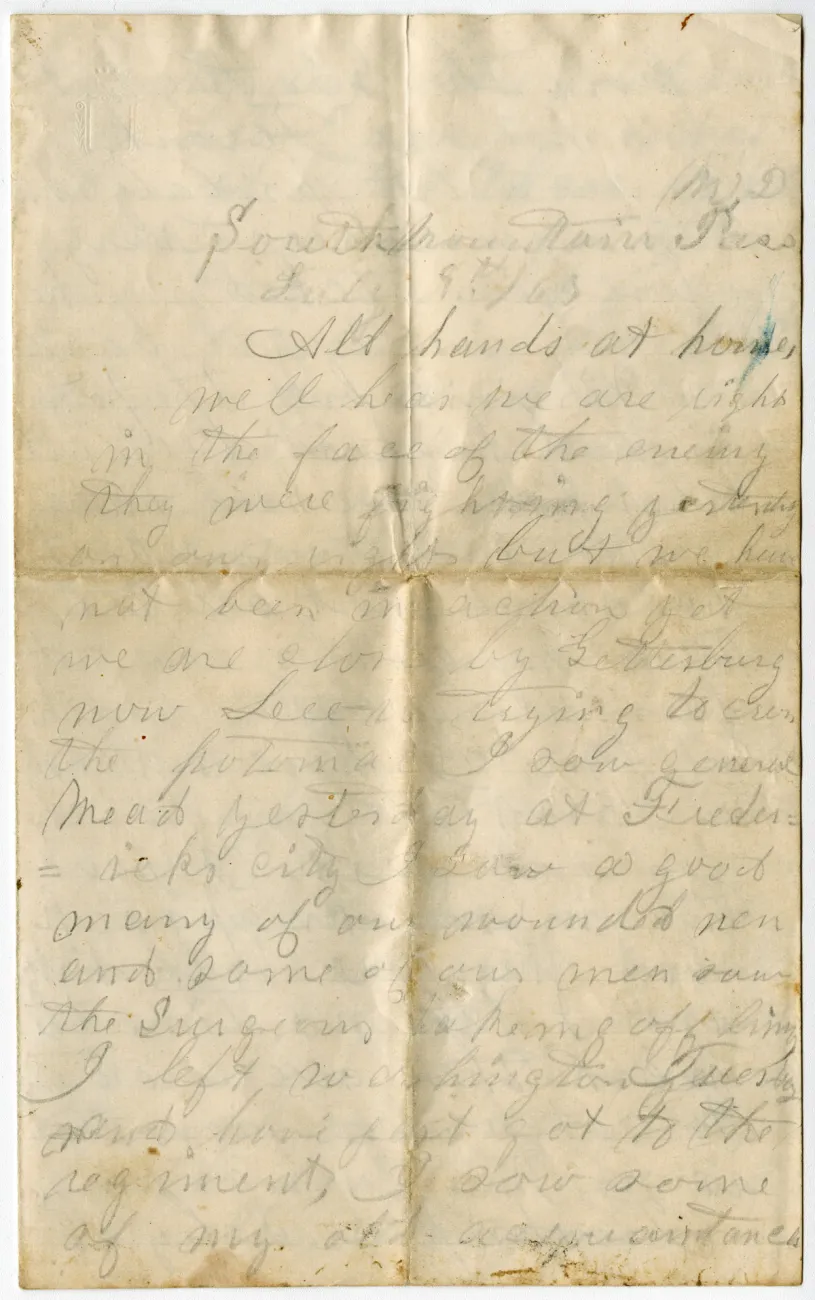 M D
South mountain Pass
July 9th /63
All hands at home,
well hear we are right
in the face of the enemy
they were fighting yesterday
on our right but we have
not been in action yet
we are close by Gettersburg
now Lee is trying to cross
the potomac I saw general
Mead yesterday at Freder=
= icks city I saw a good
many of our wounded men
and some of our men saw
the Surgeons takeing off limbs
I left washington Tuesday
and have just got to the
regiment, I saw some
of my old acquaintances